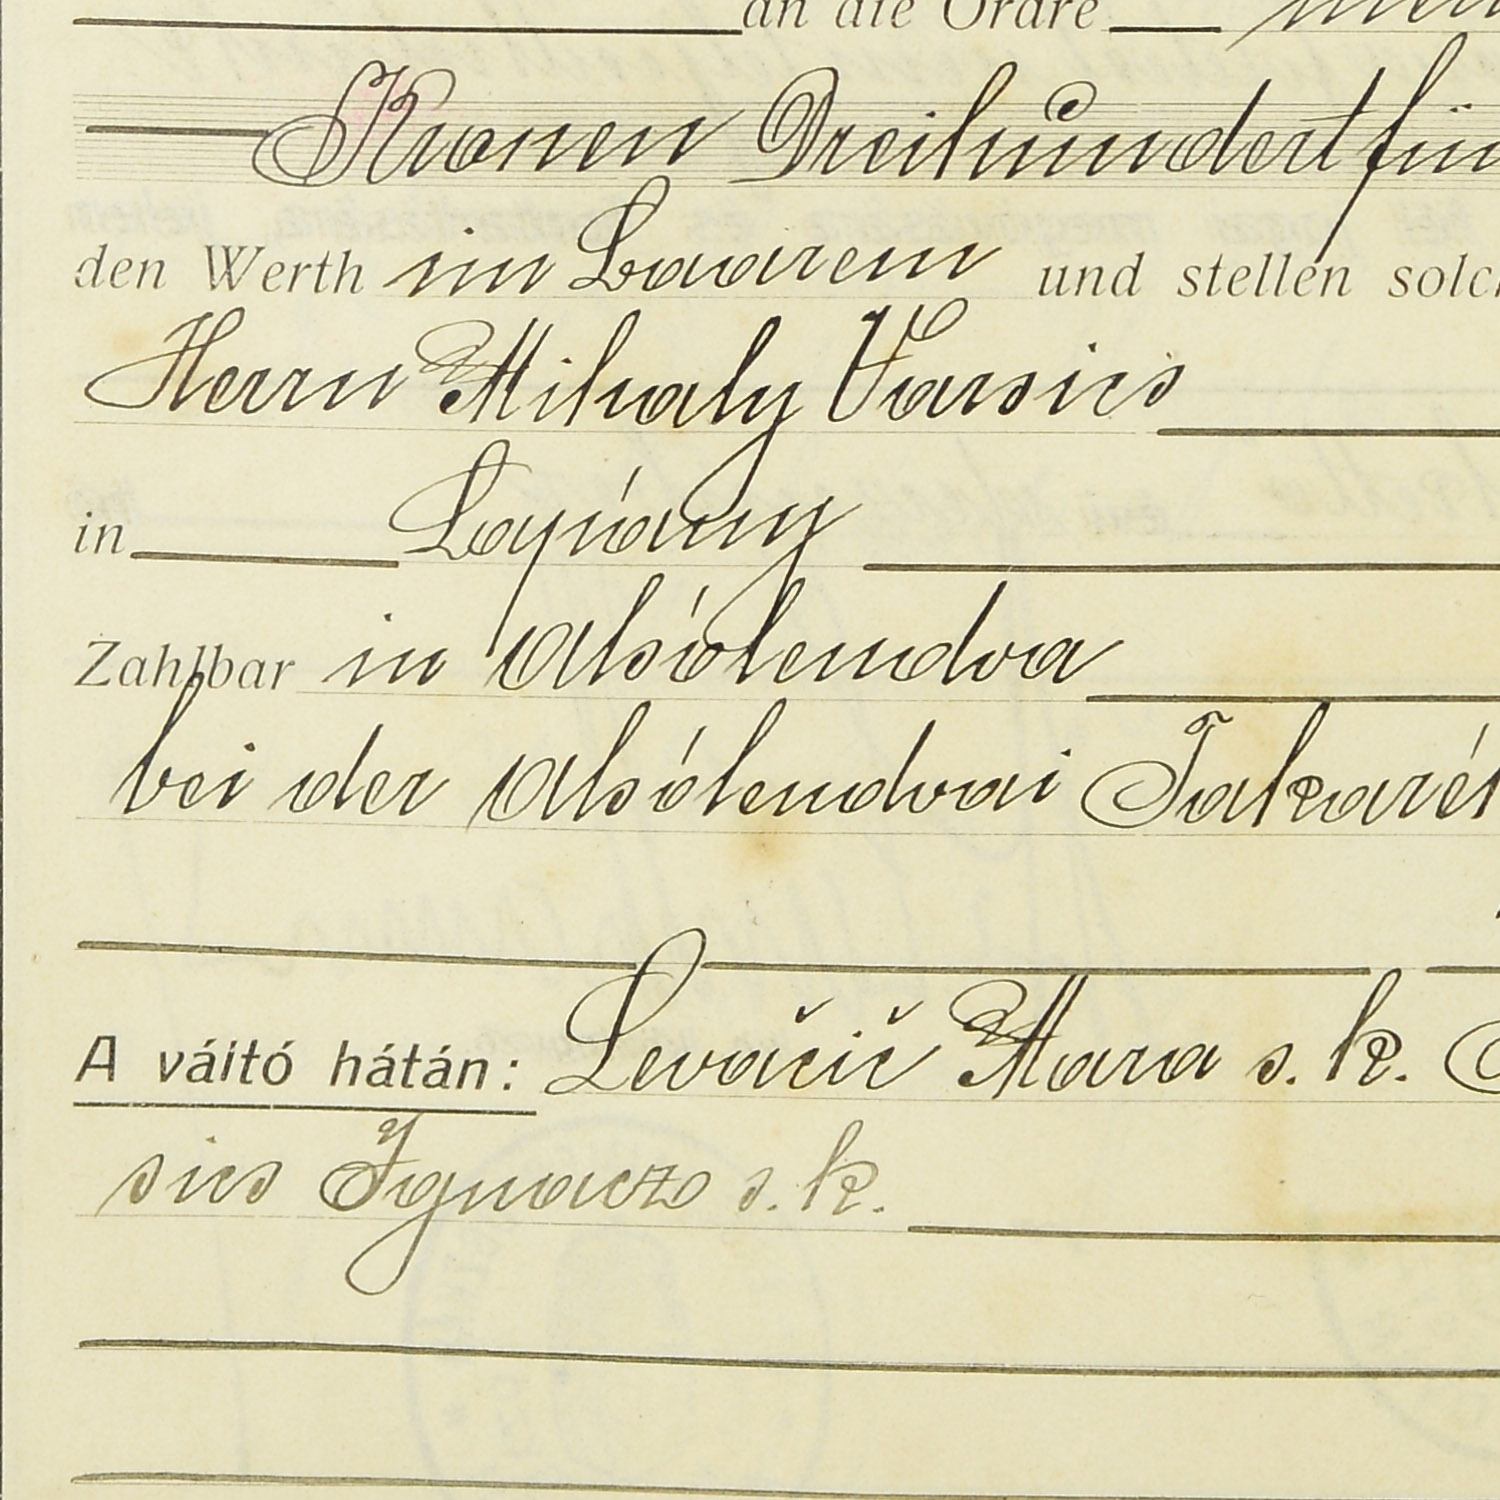 an die Ordre
Kronen Dreihundert fün
den Werth im Baarem und stellen solch
Herrn Mihaly Varsics
in Lapány
Zahlbar in Alsólendva
bei der Alsólendvai Takarék
A váltó hátán: Levačič Mara s. k.
sics Ignacz s. k.